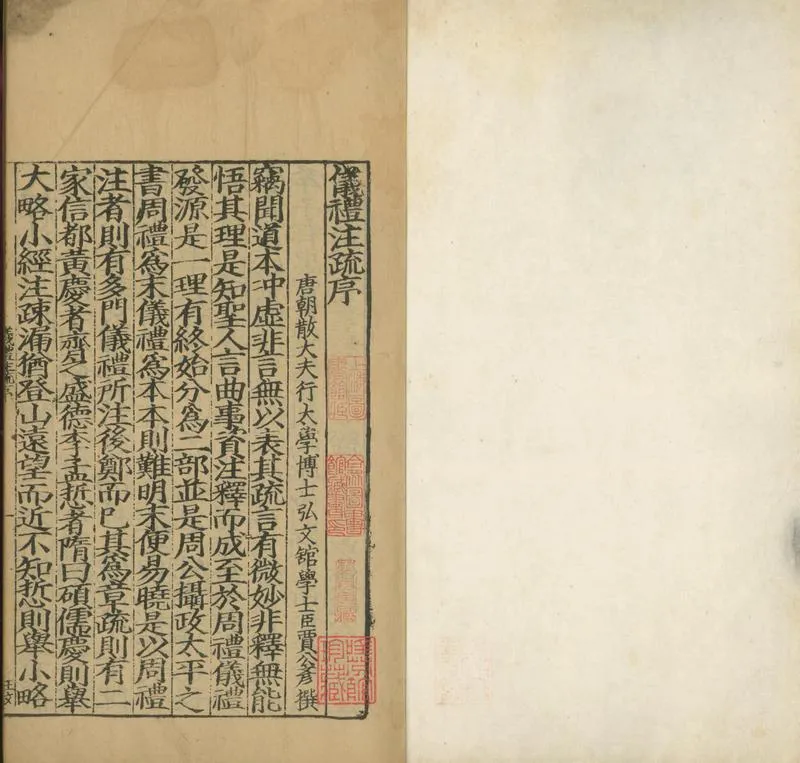 儀禮注疏序
唐朝散大夫行太學博士弘文館學士臣賈公彥撰
竊聞道本冲虛非言無以表其疏言有微妙非釋無能
悟其理是知聖人言曲事資注釋而成至於周禮儀禮
發源是一理有終始分爲二部並是周公攝政太平之
書周禮爲末儀禮爲本本則難明末便易曉是以周禮
注者則有多門儀禮所注後鄭而已其爲章疏則有二
家信都黃慶者齊之盛德李孟悊者隋曰碩儒慶則舉
大略小經注疎漏猶登山遠望而近不知悊則舉小略